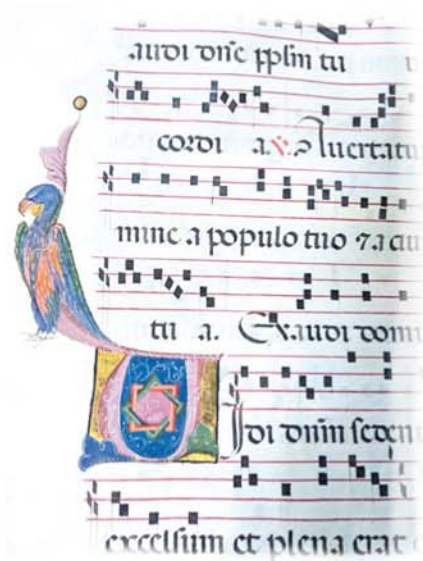 audi dn̄e pplm̄ tu
cordi a. ℣. Auertatu
mine a populo tuo ⁊ a ciu
tu a. Exaudi domi
VIdi dn̄m seden
excelsum et plena erat